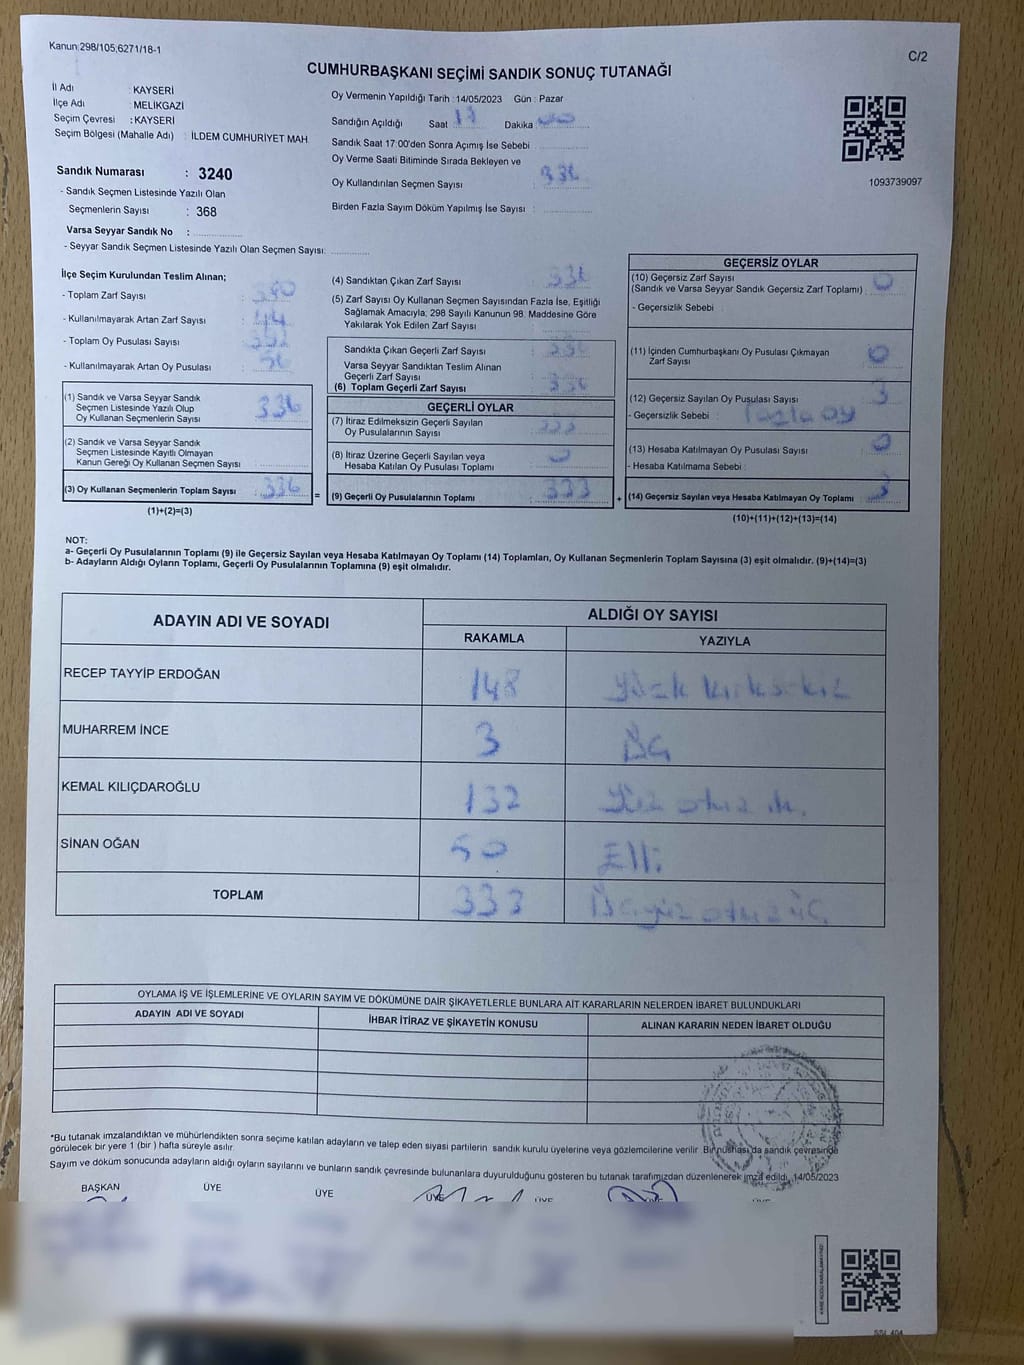 Kanun:298/105,6271/18-1
C/2
CUMHURBAŞKANI SEÇİMİ SANDIK SONUÇ TUTANAĞI
İl Adı : KAYSERİ
İlçe Adı : MELİKGAZİ
Seçim Çevresi : KAYSERİ
Seçim Bölgesi (Mahalle Adı) : İLDEM CUMHURİYET MAH.
Sandık Numarası : 3240
- Sandık Seçmen Listesinde Yazılı Olan
Seçmenlerin Sayısı : 368
Varsa Seyyar Sandık No :
- Seyyar Sandık Seçmen Listesinde Yazılı Olan Seçmen Sayısı:
Oy Vermenin Yapıldığı Tarih : 14/05/2023 Gün : Pazar
Sandığın Açıldığı Saat 17 Dakika 00
Sandık Saat 17:00'den Sonra Açımış İse Sebebi
Oy Verme Saati Bitiminde Sırada Bekleyen ve
Oy Kullandırılan Seçmen Sayısı : 336
Birden Fazla Sayım Döküm Yapılmış İse Sayısı :
1093739097
İlçe Seçim Kurulundan Teslim Alınan;
- Toplam Zarf Sayısı :
- Kullanılmayarak Artan Zarf Sayısı :
- Toplam Oy Pusulası Sayısı :
- Kullanılmayarak Artan Oy Pusulası :
(1) Sandık ve Varsa Seyyar Sandık
Seçmen Listesinde Yazılı Olup
Oy Kullanan Seçmenlerin Sayısı : 336
(2) Sandık ve Varsa Seyyar Sandık
Seçmen Listesinde Kayıtlı Olmayan
Kanun Gereği Oy Kullanan Seçmen Sayısı :
(3) Oy Kullanan Seçmenlerin Toplam Sayısı : 336
(1)+(2)=(3)
(4) Sandıktan Çıkan Zarf Sayısı : 336
(5) Zarf Sayısı Oy Kullanan Seçmen Sayısından Fazla İse, Eşitliği
Sağlamak Amacıyla, 298 Sayılı Kanunun 98. Maddesine Göre
Yakılarak Yok Edilen Zarf Sayısı :
Sandıkta Çıkan Geçerli Zarf Sayısı : 336
Varsa Seyyar Sandıktan Teslim Alınan
Geçerli Zarf Sayısı :
(6) Toplam Geçerli Zarf Sayısı 336
GEÇERLİ OYLAR
(7) İtiraz Edilmeksizin Geçerli Sayılan
Oy Pusulalarının Sayısı : 333
(8) İtiraz Üzerine Geçerli Sayılan veya
Hesaba Katılan Oy Pusulası Toplamı : 0
= (9) Geçerli Oy Pusulalarının Toplamı : 333 +
GEÇERSİZ OYLAR
(10) Geçersiz Zarf Sayısı
(Sandık ve Varsa Seyyar Sandık Geçersiz Zarf Toplamı) : 0
- Geçersizlik Sebebi :
(11) İçinden Cumhurbaşkanı Oy Pusulası Çıkmayan
Zarf Sayısı : 0
(12) Geçersiz Sayılan Oy Pusulası Sayısı : 3
- Geçersizlik Sebebi : Fazla oy
(13) Hesaba Katılmayan Oy Pusulası Sayısı : 0
- Hesaba Katılmama Sebebi :
(14) Geçersiz Sayılan veya Hesaba Katılmayan Oy Toplamı : 3
(10)+(11)+(12)+(13)=(14)
NOT:
a- Geçerli Oy Pusulalarının Toplamı (9) ile Geçersiz Sayılan veya Hesaba Katılmayan Oy Toplamı (14) Toplamları, Oy Kullanan Seçmenlerin Toplam Sayısına (3) eşit olmalıdır. (9)+(14)=(3)
b- Adayların Aldığı Oyların Toplamı, Geçerli Oy Pusulalarının Toplamına (9) eşit olmalıdır.
ADAYIN ADI VE SOYADI ALDIĞI OY SAYISI
RAKAMLA YAZIYLA
RECEP TAYYİP ERDOĞAN 148 Yüzk kırksekiz
MUHARREM İNCE 3 Üç
KEMAL KILIÇDAROĞLU 132 Yüz otuz iki
SİNAN OĞAN 50 Elli
TOPLAM 333 Üçyüz otuz üç
OYLAMA İŞ VE İŞLEMLERİNE VE OYLARIN SAYIM VE DÖKÜMÜNE DAİR ŞİKAYETLERLE BUNLARA AİT KARARLARIN NELERDEN İBARET BULUNDUKLARI
ADAYIN ADI VE SOYADI İHBAR İTİRAZ VE ŞİKAYETİN KONUSU ALINAN KARARIN NEDEN İBARET OLDUĞU
*Bu tutanak imzalandıktan ve mühürlendikten sonra seçime katılan adayların ve talep eden siyasi partilerin sandık kurulu üyelerine veya gözlemcilerine verilir. Bir nüshası da sandık çevresinde
görülecek bir yere 1 (bir) hafta süreyle asılır.
Sayım ve döküm sonucunda adayların aldığı oyların sayılarını ve bunların sandık çevresinde bulunanlara duyurulduğunu gösteren bu tutanak tarafımızdan düzenlenerek imza edildi. 14/05/2023
BAŞKAN ÜYE ÜYE ÜYE ÜYE